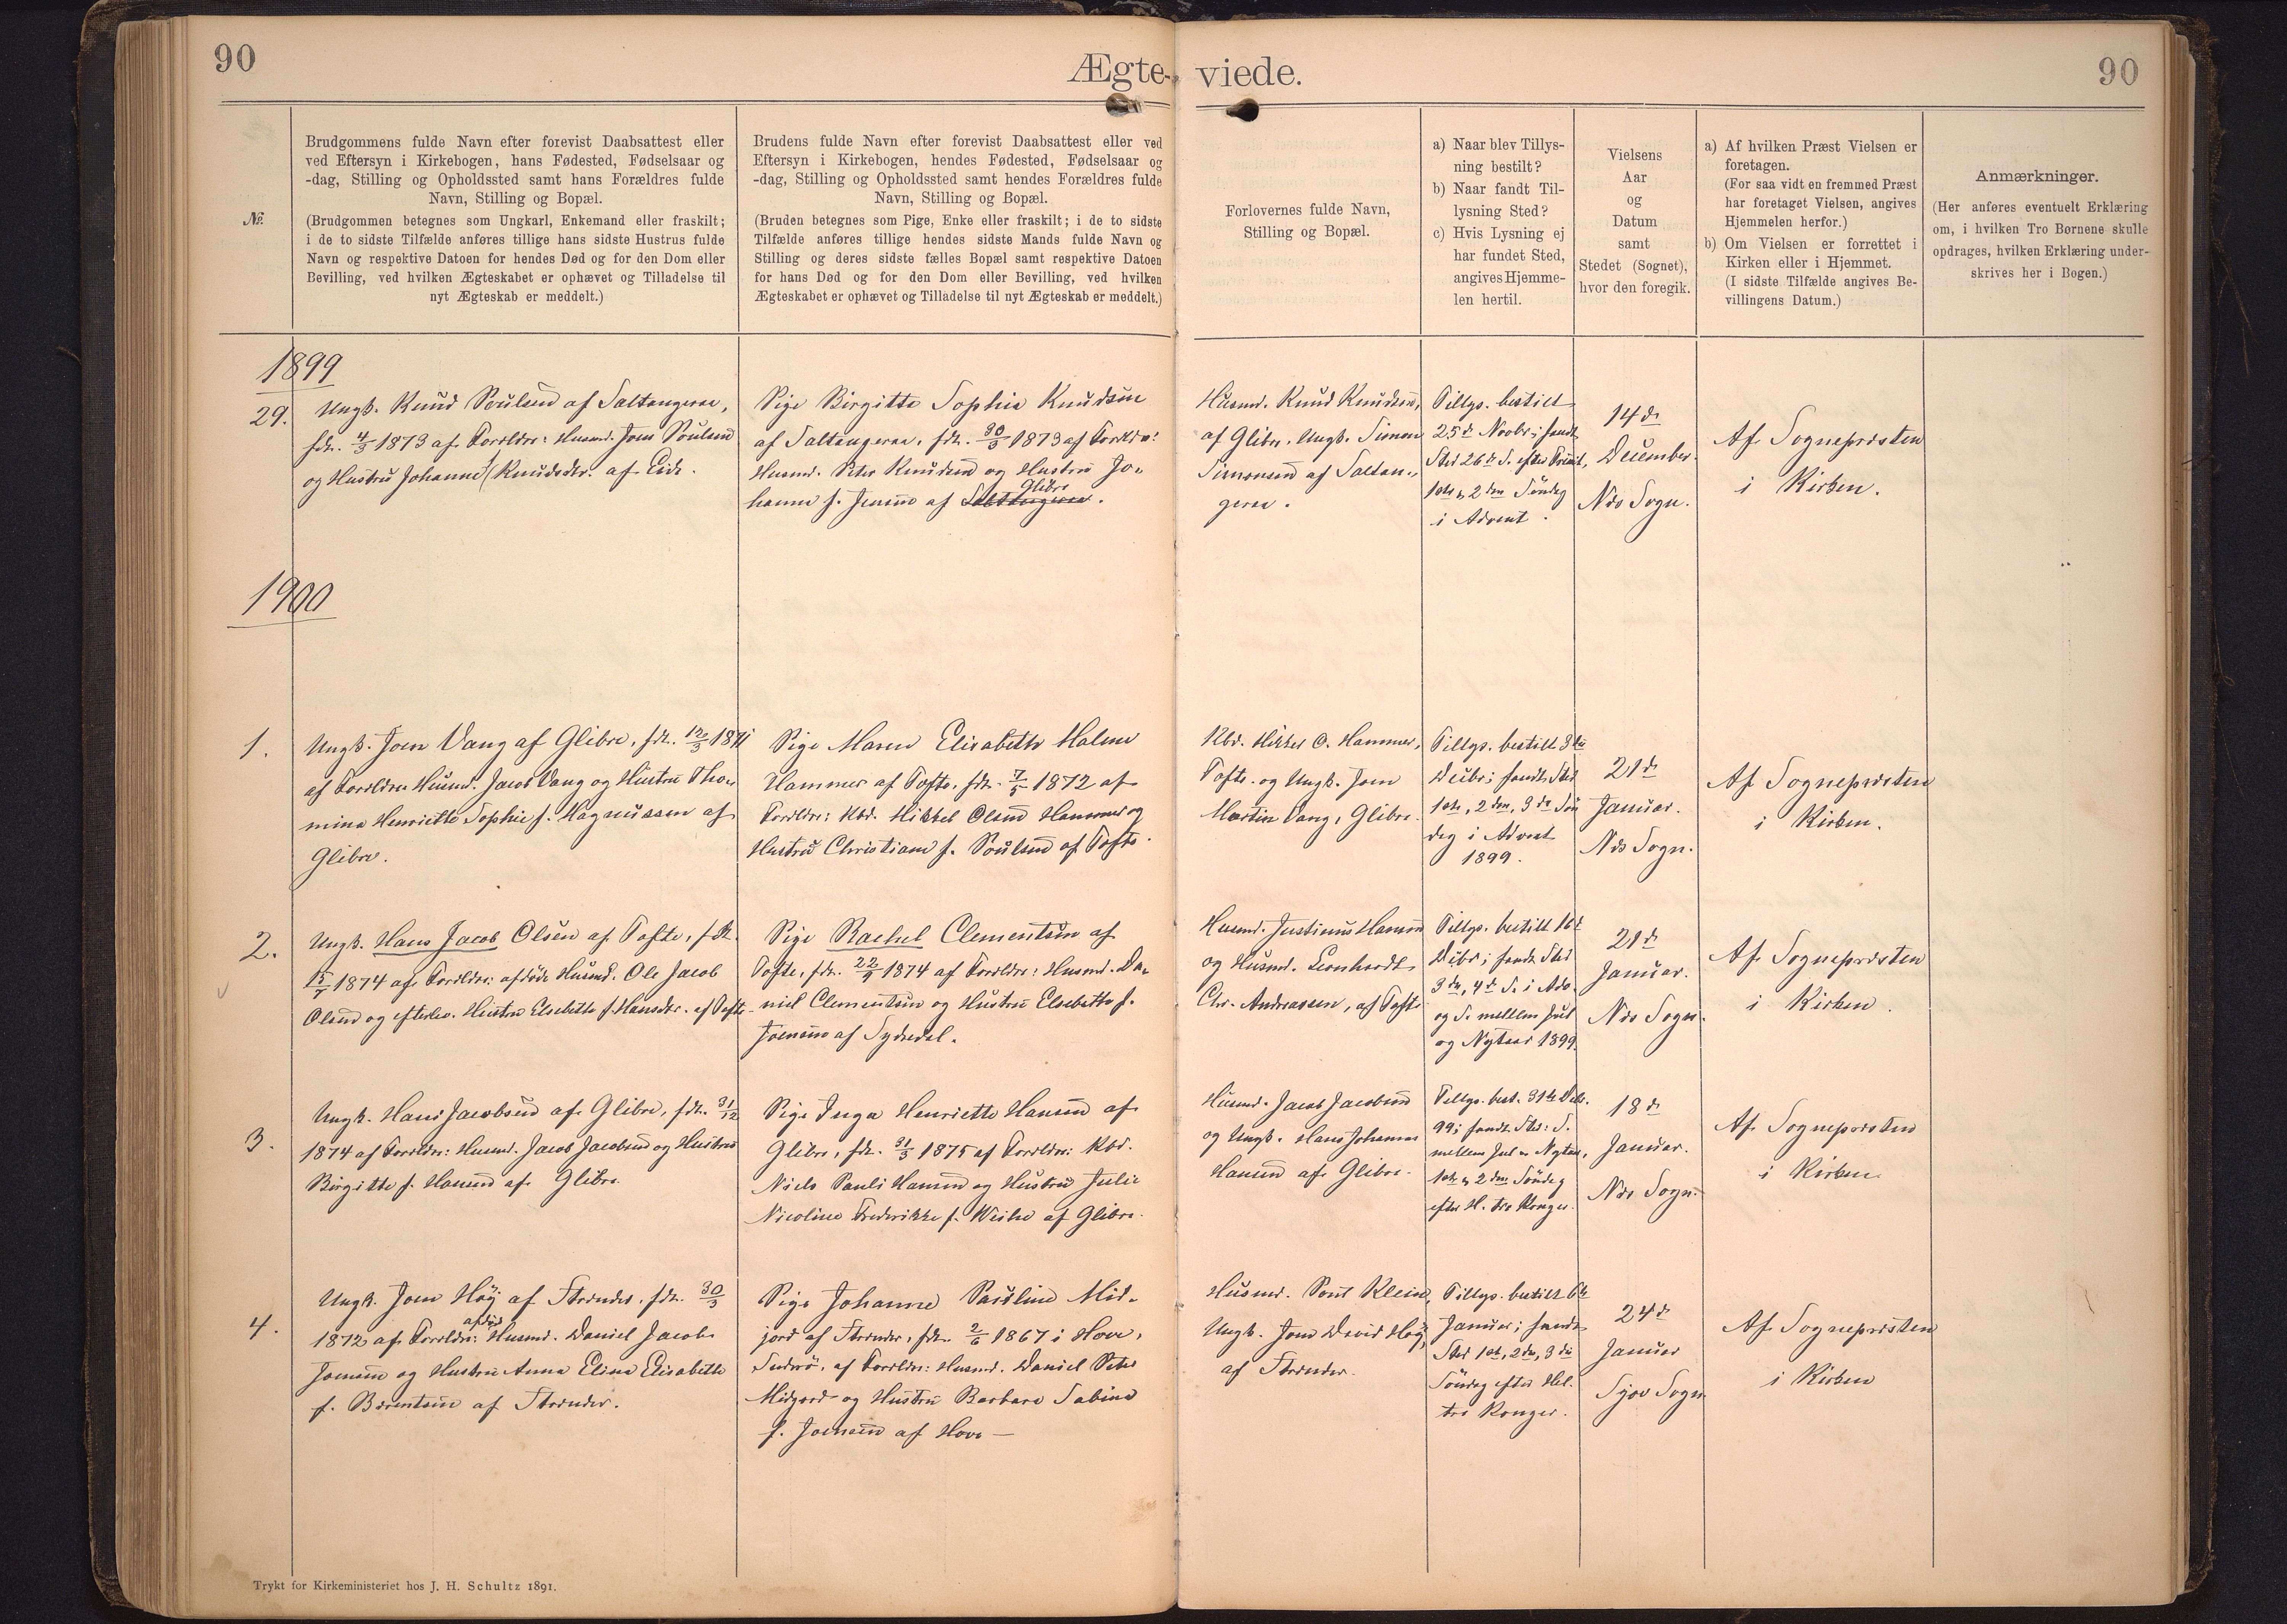 90
Ægte-
viede.
90
№.
Brudgommens fulde Navn efter forevist Daabsattest eller
ved Eftersyn i Kirkebogen, hans Fødested, Fødselsaar og
-dag, Stilling og Opholdssted samt hans Forældres fulde
Navn, Stilling og Bopæl.
(Brudgommen betegnes som Ungkarl, Enkemand eller fraskilt;
i de to sidste Tilfælde anføres tillige hans sidste Hustrus fulde
Navn og respektive Datoen for hendes Død og for den Dom eller
Bevilling, ved hvilken Ægteskabet er ophævet og Tilladelse til
nyt Ægteskab er meddelt.)
Brudens fulde Navn efter forevist Daabsattest eller ved
Eftersyn i Kirkebogen, hendes Fødested, Fødselsaar og
-dag, Stilling og Opholdssted samt hendes Forældres fulde
Navn, Stilling og Bopæl.
(Bruden betegnes som Pige, Enke eller fraskilt; i de to sidste
Tilfælde anføres tillige hendes sidste Mands fulde Navn og
Stilling og deres sidste fælles Bopæl samt respektive Datoen
for hans Død og for den Dom eller Bevilling, ved hvilken
Ægteskabet er ophævet og Tilladelse til nyt Ægteskab er meddelt.)
Forlovernes fulde Navn,
Stilling og Bopæl.
a) Naar blev Tillys-
ning bestilt?
b) Naar fandt Til-
lysning Sted?
c) Hvis Lysning ej
har fundet Sted,
angives Hjemme-
len hertil.
Vielsens
Aar
og
Datum
samt
Stedet (Sognet),
hvor den foregik.
a) Af hvilken Præst Vielsen er
foretagen.
(For saa vidt en fremmed Præst
har foretaget Vielsen, angives
Hjemmelen herfor.)
b) Om Vielsen er forrettet i
Kirken eller i Hjemmet.
(I sidste Tilfælde angives Be-
villingens Datum.)
Anmærkninger.
(Her anføres eventuelt Erklæring
om, i hvilken Tro Børnene skulle
opdrages, hvilken Erklæring under-
skrives her i Bogen.)
1899
29.
Ungk. Knud Poulsen af Saltangeraa,
fdt. 4/3 1873 af Forældre: Husmd. Joen Poulsen
og Hustru Johanne f. Knudsdtr. af Eide.
Pige Birgitte Sophie Knudsen
af Saltangeraa, fdt. 30/3 1873 af Forældre:
Husmd. Peter Knudsen og Hustru Jo-
hanne f. Jensen af Saltangeraa Glibre.
Husmd. Knud Knudsen,
af Glibre. Ungk. Simon
Simonsen af Saltan-
geraa.
Tillys. bestilt
25de Novbr; fandt
Sted 26de S. efter Trinit,
1ste & 2den Søndag
i Advent.
14de
December.
Næs Sogn.
Af Sognepræsten
i Kirken.
1900
1.
Ungk. Joen Vang af Glibre, fdt. 12/3 1871
af Forældre Husmd. Jacob Vang og Hustru Tho-
mina Henriette Sophie f. Magnussen af
Glibre.
Pige Maren Elisabeth Malene
Hammer af Tofte, fdt. 7/5 1872 af
Forældre: Kbd. Mikkel Olsen Hammer og
Hustru Christiane f. Poulsen af Tofte.
Kbd. Mikkel O. Hammer,
Tofte. og Ungk. Joen
Martin Vang, Glibre.
Tillys. bestilt 3die
Decbr; fandt Sted
1ste, 2den, 3die Søn
dag i Advent
1899.
21de
Januar.
Næs Sogn.
Af Sognepræsten
i Kirken.
2.
Ungk. Hans Jacob Olsen af Tofte, fdt.
15/7 1874 af Forældre: afdøde Husmd. Ole Jacob
Olsen og efterlev. Hustru Elsebette f. Hansdtr. af Tofte.
Pige Rachel Clementsen af
Tofte, fdt. 22/9 1874 af Forældre: Husmd. Da-
niel Clementsen og Hustru Elsebette f.
Joensen af Sydredal.
Husmd. Justinus Hansen
og Husmd. Leonhardt
Chr. Andreassen, af Tofte
Tillys. bestilt 16de
Decbr; fandt Sted
3die, 4de S. i Adv.
og S. mellem Jul
og Nytaar 1899.
21de
Januar.
Næs Sogn.
Af Sognepræsten
i Kirken.
3.
Ungk. Hans Jacobsen af Glibre, fdt. 31/12
1874 af Forældre: Husmd. Jacob Jacobsen og Hustru
Birgitte f. Hansen af Glibre.
Pige Inga Henriette Hansen af
Glibre, fdt. 31/3 1875 af Forældre: Kbd.
Niels Pauli Hansen og Hustru Julie
Nicoline Frederikke f. Weihe af Glibre.
Husmd. Jacob Jacobsen
og Ungk. Hans Johannes
Hansen af Glibre.
Tillys. best. 31te Decbr.
99; fandt Sted: S.
mellem Jul & Nytaar,
1ste & 2den Søndag
efter H. tre Konger.
18de
Januar.
Næs Sogn.
Af Sognepræsten
i Kirken
4.
Ungk. Joen Høj af Strænder, fdt. 30/3
1872 af Forældre: afdød Husmd. Daniel Jacob
Joensen og Hustru Anna Elina Elisabeth
f. Berentsen af Strænder.
Pige Johanne Pauline Mid-
jord af Strænder, fdt. 2/6 1867 i Hove,
Suderø, af Forældre: Husmd. Daniel Peter
Midjord og Hustru Barbara Sabina
f. Joensen af Hove —
Husmd. Poul Klein,
Ungk. Joen David Høj,
af Strænder.
Tillys. bestilt 6te
Januar; fandt
Sted 1ste, 2den, 3die
Søndag efter Hel.
tre Konger.
24de
Januar
Sjov Sogn
Af Sognepræsten
i Kirken
Trykt for Kirkeministeriet hos J. H. Schultz 1891.